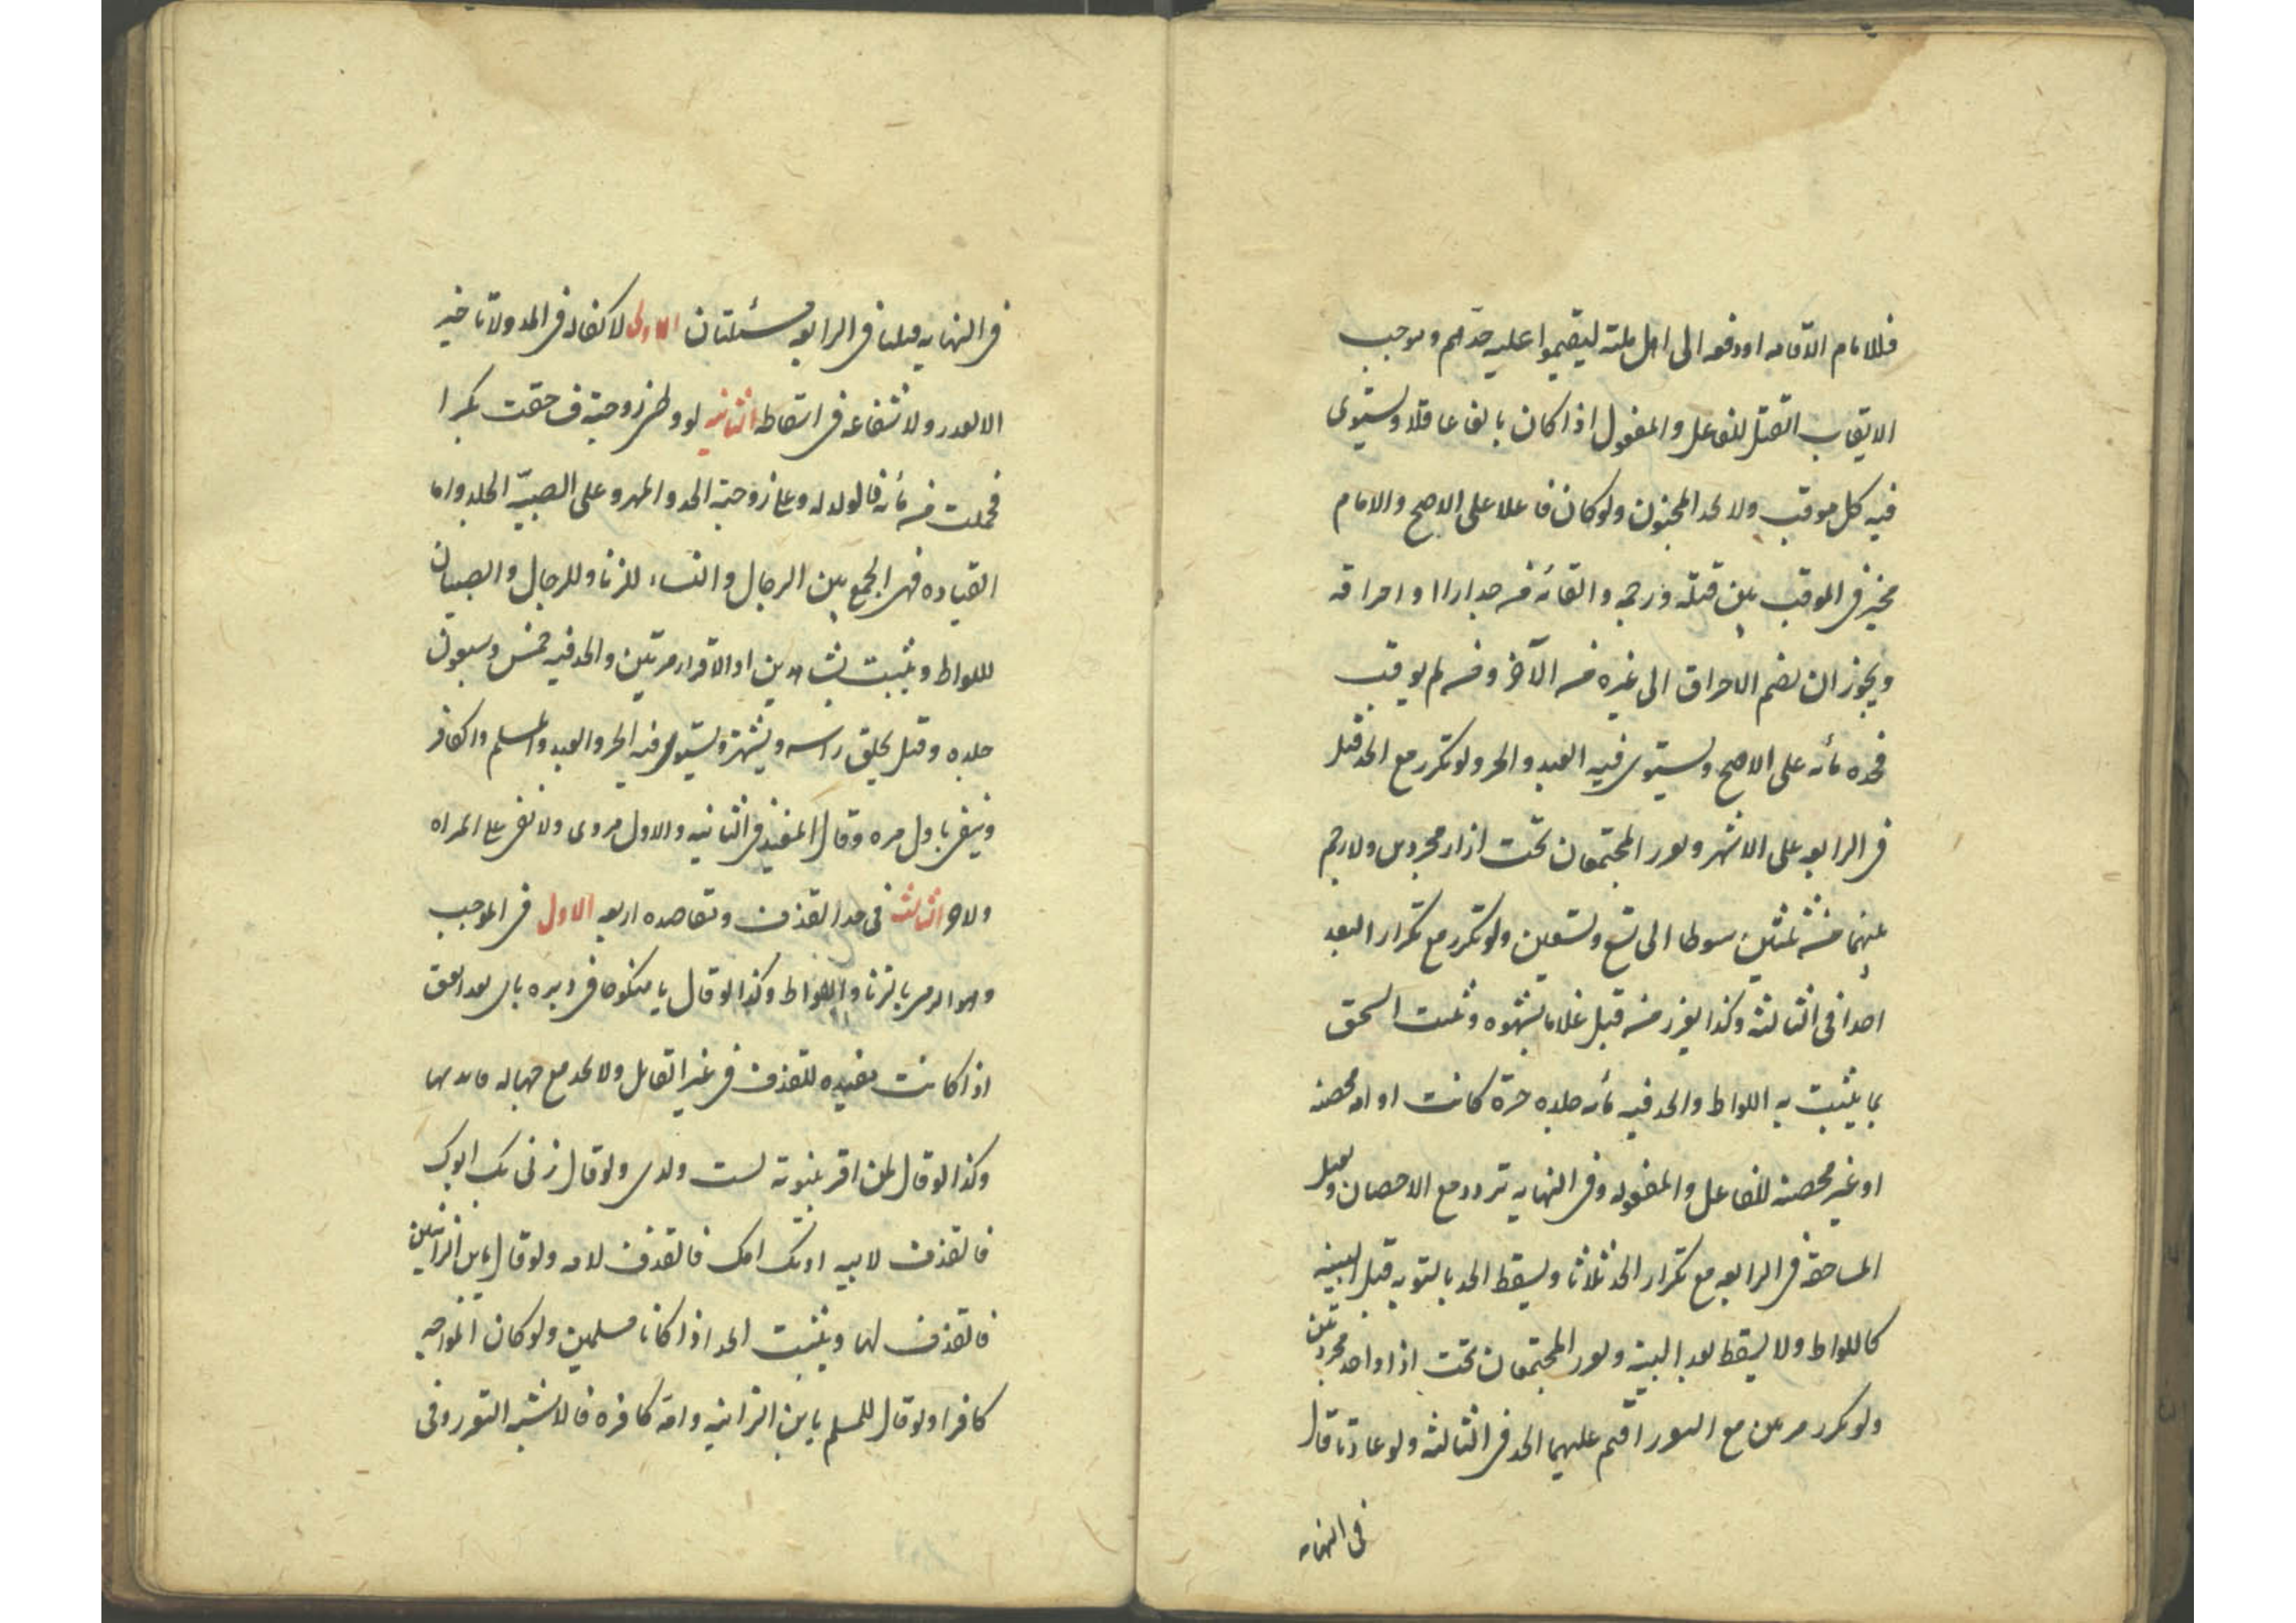 فللامام الاقامه اودفعه الى اهل ملته ليقيموا عليه حدهم وموجب
الايقاب القتل للفاعل والمفعول اذا كان بالغا عاقلا ويستوى
فيه كل موقب ولا يحد المجنون ولو كان فاعلا على الاصح والامام
مخير فى الموقب بين قتله ورجمه والقائه من جدار او احراقه
ويجوز ان يضم الاحراق الى غيره من الآخر ومن لم يوقب
فحده مأئه على الاصح ويستوى فيه العبد والحر ولو تكرر مع الحد قتل
فى الرابعه على الاشهر ويعزر المجتمعان تحت ازار مجردين ولا رحم
بينهما من ثلثين سوطا الى تسع وتسعين ولو تكرر مع تكرار التعزير
حدا فى الثالثه وكذا يعزر من قبل غلاما بشهوه ويثبت السحق
بما يثبت به اللواط والحد فيه مأئه جلده حرة كانت او امه محصنه
او غير محصنه للفاعل والمفعوله وفى النهايه ترجم مع الاحصان ويقتل
المساحقه فى الرابعه مع تكرار الحد ثلاثا ويسقط الحد بالتوبه قبل البينه
كاللواط ولا يسقط بعد البينه ويعزر المجتمعان تحت ازار واحد مجردتين
ولو تكرر مرتين مع التعزير اقيم عليهما الحد فى الثالثه ولو عادتا قال
فى النهايه
فى النهايه قتلتا فى الرابعه مسئلتان الاولى لا كفاله فى الحد ولا تاخير
الا لعذر ولا شفاعه فى اسقاطه الثانيه لو وطى زوجته فساحقت بكرا
فحملت من مائه فالولد له وعلى زوجته الحد والمهر وعلى الصبيّه الجلد واما
القياده فهى الجمع بين الرجال والنساء للزنا وللرجال والصبيان
للواط ويثبت بشاهدين او الاقرار مرتين والحد فيه خمس وسبعون
جلده وقيل يحلق راسه ويشهر ويستوى فيه الحر والعبد والمسلم والكافر
وينفى باول مره وقال المفيد فى الثانيه والاول مروى ولا نفى على المراه
ولا جز الثالث فى حد القذف ومقاصده اربعه الاول فى الموجب
وهو الرمى بالزنا واللواط وكذا لو قال يا منكوحا فى دبره باى لغه اتفق
اذا كانت مفيده للقذف فى غير القايل ولا يحد مع جهاله فايدتها
وكذا لو قال لمن اقر ببنوته لست ولدى ولو قال زنى بك ابوك
فالقذف لابيه او بك امك فالقذف لامه ولو قال يابن الزانيين
فالقذف لهما ويثبت الحد اذا كانا مسلمين ولو كان المواجه
كافرا ولو قال للمسلم يا بن الزانيه وامه كافره فالاشبه التعزير وفى